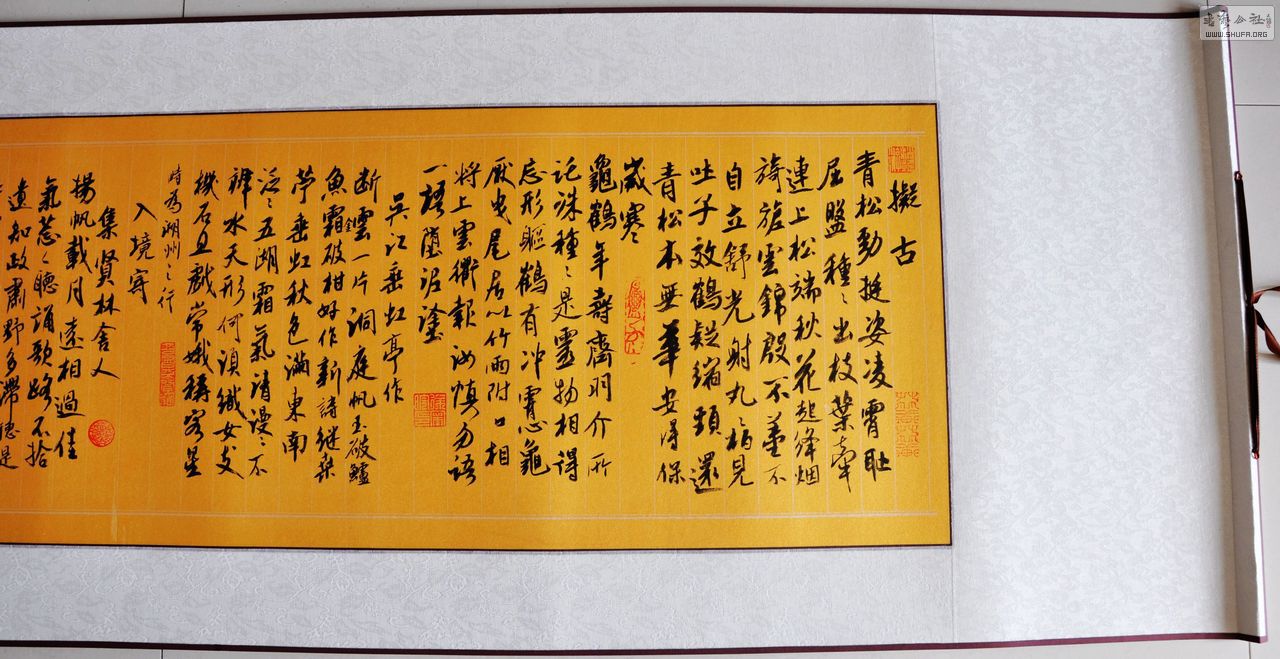 擬古
青松勁挺姿凌霄恥
屈盤種々出枝葉牽
連上松端秋花起絳烟
旖旎雲錦殷不羞不
自立舒光射丸々柏見
吐子效鶴疑縮頸還
青松本無華安得保
歲寒
龜鶴年壽齊羽介所
託殊種々是靈物相得
忘形軀鶴有冲霄心龜
厭曳尾居以竹兩附口相
將上雲衢報汝慎勿語
一語墮泥塗
吳江垂虹亭作
断雲一片洞庭帆玉破鱸
魚霜破柑好作新詩継桑
苧垂虹秋色滿東南
泛々五湖霜氣清漫々不
辨水天形何須織女支
機石且戲常娥稱客星
時為湖州之行
入境寄
集賢林舍人
揚帆載月遠相過佳
氣葱々聽誦歌路不拾
遺知政肅野多滯穗是
WWW.SHUFA.ORG